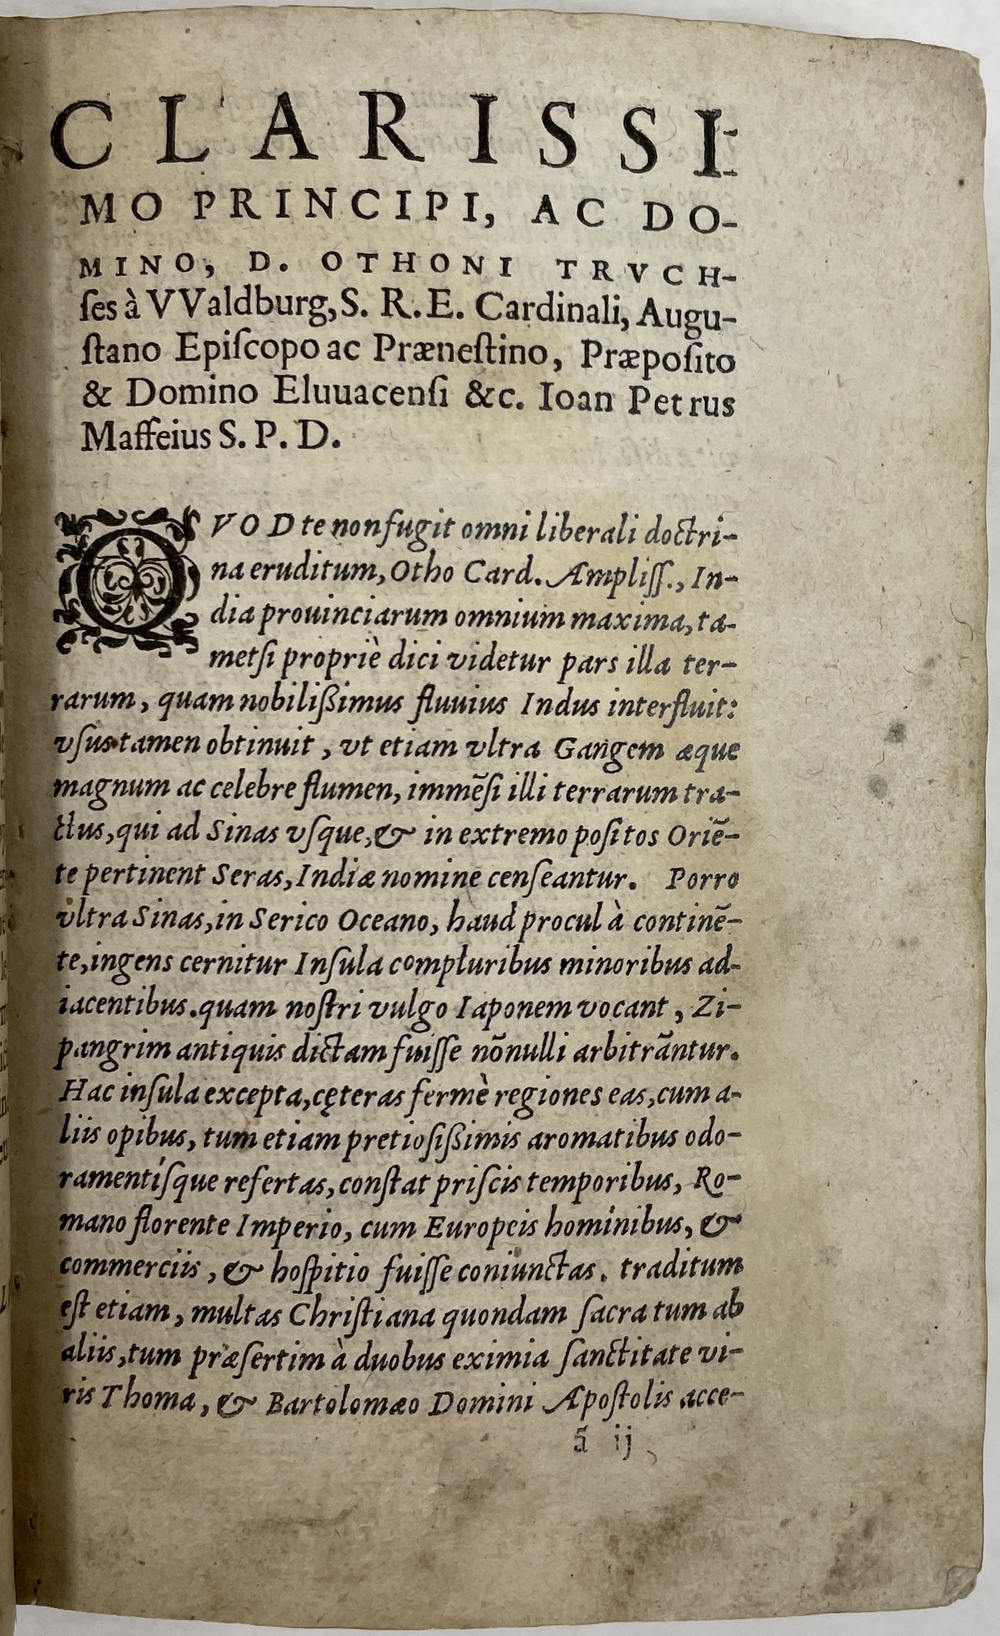 CLARISSI-
MO PRINCIPI, AC DO-
MINO, D. OTHONI TRVCH-
ſes à VValdburg, S. R. E. Cardinali, Augu-
ſtano Epiſcopo ac Præneſtino, Præpoſito
& Domino Eluuacenſi &c. Ioan Petrus
Maffeius S. P. D.
QVOD te non fugit omni liberali doctri-
na eruditum, Otho Card. Ampliſſ., In-
dia prouinciarum omnium maxima, ta-
metſi propriè dici videtur pars illa ter-
rarum, quam nobilißimus fluuius Indus interfluit:
vſus tamen obtinuit, vt etiam vltra Gangem æque
magnum ac celebre flumen, immẽſi illi terrarum tra-
ctus, qui ad Sinas vſque, & in extremo poſitos Oriẽ-
te pertinent Seras, Indiæ nomine cenſeantur. Porro
vltra Sinas, in Serico Oceano, haud procul à continẽ-
te, ingens cernitur Inſula compluribus minoribus ad-
iacentibus. quam noſtri vulgo Iaponem vocant, Zi-
pangrim antiquis dictam fuiſſe nõnulli arbitrãntur.
Hac inſula excepta, cęteras fermè regiones eas, cum a-
liis opibus, tum etiam pretioſißimis aromatibus odo-
ramentíſque refertas, conſtat priſcis temporibus, Ro-
mano florente Imperio, cum Europeis hominibus, &
commerciis, & hoſpitio fuiſſe coniunctas. traditum
eſt etiam, multas Chriſtiana quondam ſacra tum ab
aliis, tum præſertim à duobus eximia ſanctitate vi-
ris Thoma, & Bartolomæo Domini Apoſtolis acce-
ã ij